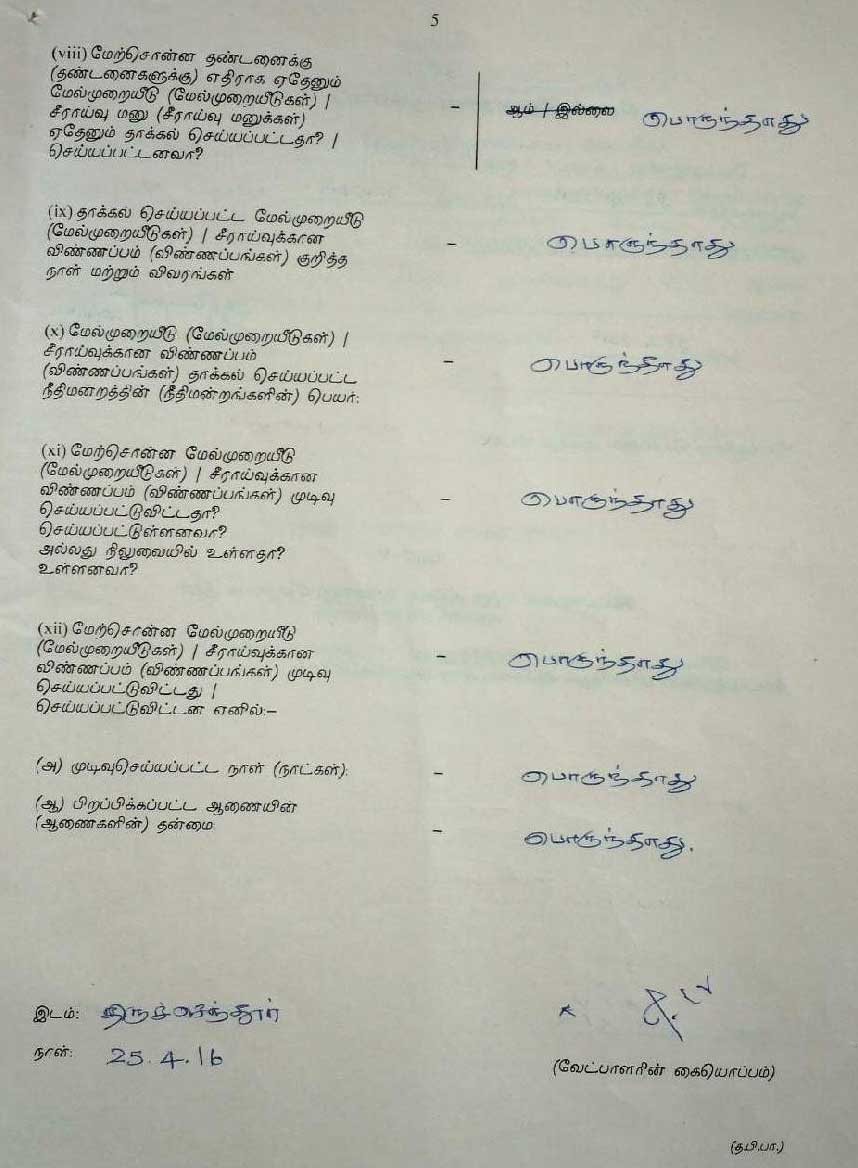 5
(viii) மேற்சொன்ன தண்டனைக்கு
(தண்டனைகளுக்கு) எதிராக ஏதேனும்
மேல்முறையீடு (மேல்முறையீடுகள்) |
சீராய்வு மனு (சீராய்வு மனுக்கள்)
ஏதேனும் தாக்கல் செய்யப்பட்டதா? |
செய்யப்பட்டனவா?
– ஆம் / இல்லை பொருந்தாது
(ix) தாக்கல் செய்யப்பட்ட மேல்முறையீடு
(மேல்முறையீடுகள்) | சீராய்வுக்கான
விண்ணப்பம் (விண்ணப்பங்கள்) குறித்த
நாள் மற்றும் விவரங்கள்
– பொருந்தாது
(x) மேல்முறையீடு (மேல்முறையீடுகள்) |
சீராய்வுக்கான விண்ணப்பம்
(விண்ணப்பங்கள்) தாக்கல் செய்யப்பட்ட
நீதிமன்றத்தின் (நீதிமன்றங்களின்) பெயர்:
– பொருந்தாது
(xi) மேற்சொன்ன மேல்முறையீடு
(மேல்முறையீடுகள்) | சீராய்வுக்கான
விண்ணப்பம் (விண்ணப்பங்கள்) முடிவு
செய்யப்பட்டுவிட்டதா?
செய்யப்பட்டுள்ளனவா?
அல்லது நிலுவையில் உள்ளதா?
உள்ளனவா?
– பொருந்தாது
(xii) மேற்சொன்ன மேல்முறையீடு
(மேல்முறையீடுகள்) | சீராய்வுக்கான
விண்ணப்பம் (விண்ணப்பங்கள்) முடிவு
செய்யப்பட்டுவிட்டது |
செய்யப்பட்டுவிட்டன எனில்:–
– பொருந்தாது
(அ) முடிவுசெய்யப்பட்ட நாள் (நாட்கள்): – பொருந்தாது
(ஆ) பிறப்பிக்கப்பட்ட ஆணையின்
(ஆணைகளின்) தன்மை – பொருந்தாது.
இடம்: திருச்செந்தூர்
நாள்: 25.4.16
(வேட்பாளரின் கையொப்பம்)
(தபி.பா.)